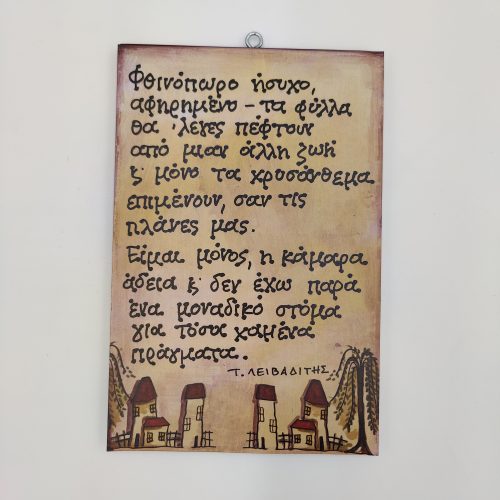 Φθινόπωρο ήσυχο,
αφηρημένο - τα φύλλα
θα 'λεγες πέφτουν
από μιαν άλλη ζωή
κ μόνο τα χρυσάνθεμα
επιμένουν, σαν τις
πλάνες μας.
Είμαι μόνος, η κάμαρα
άδεια κ δεν έχω παρά
ένα μοναδικό στόμα
για τόσα χαμένα
πράγματα.
Τ. ΛΕΙΒΑΔΙΤΗΣ